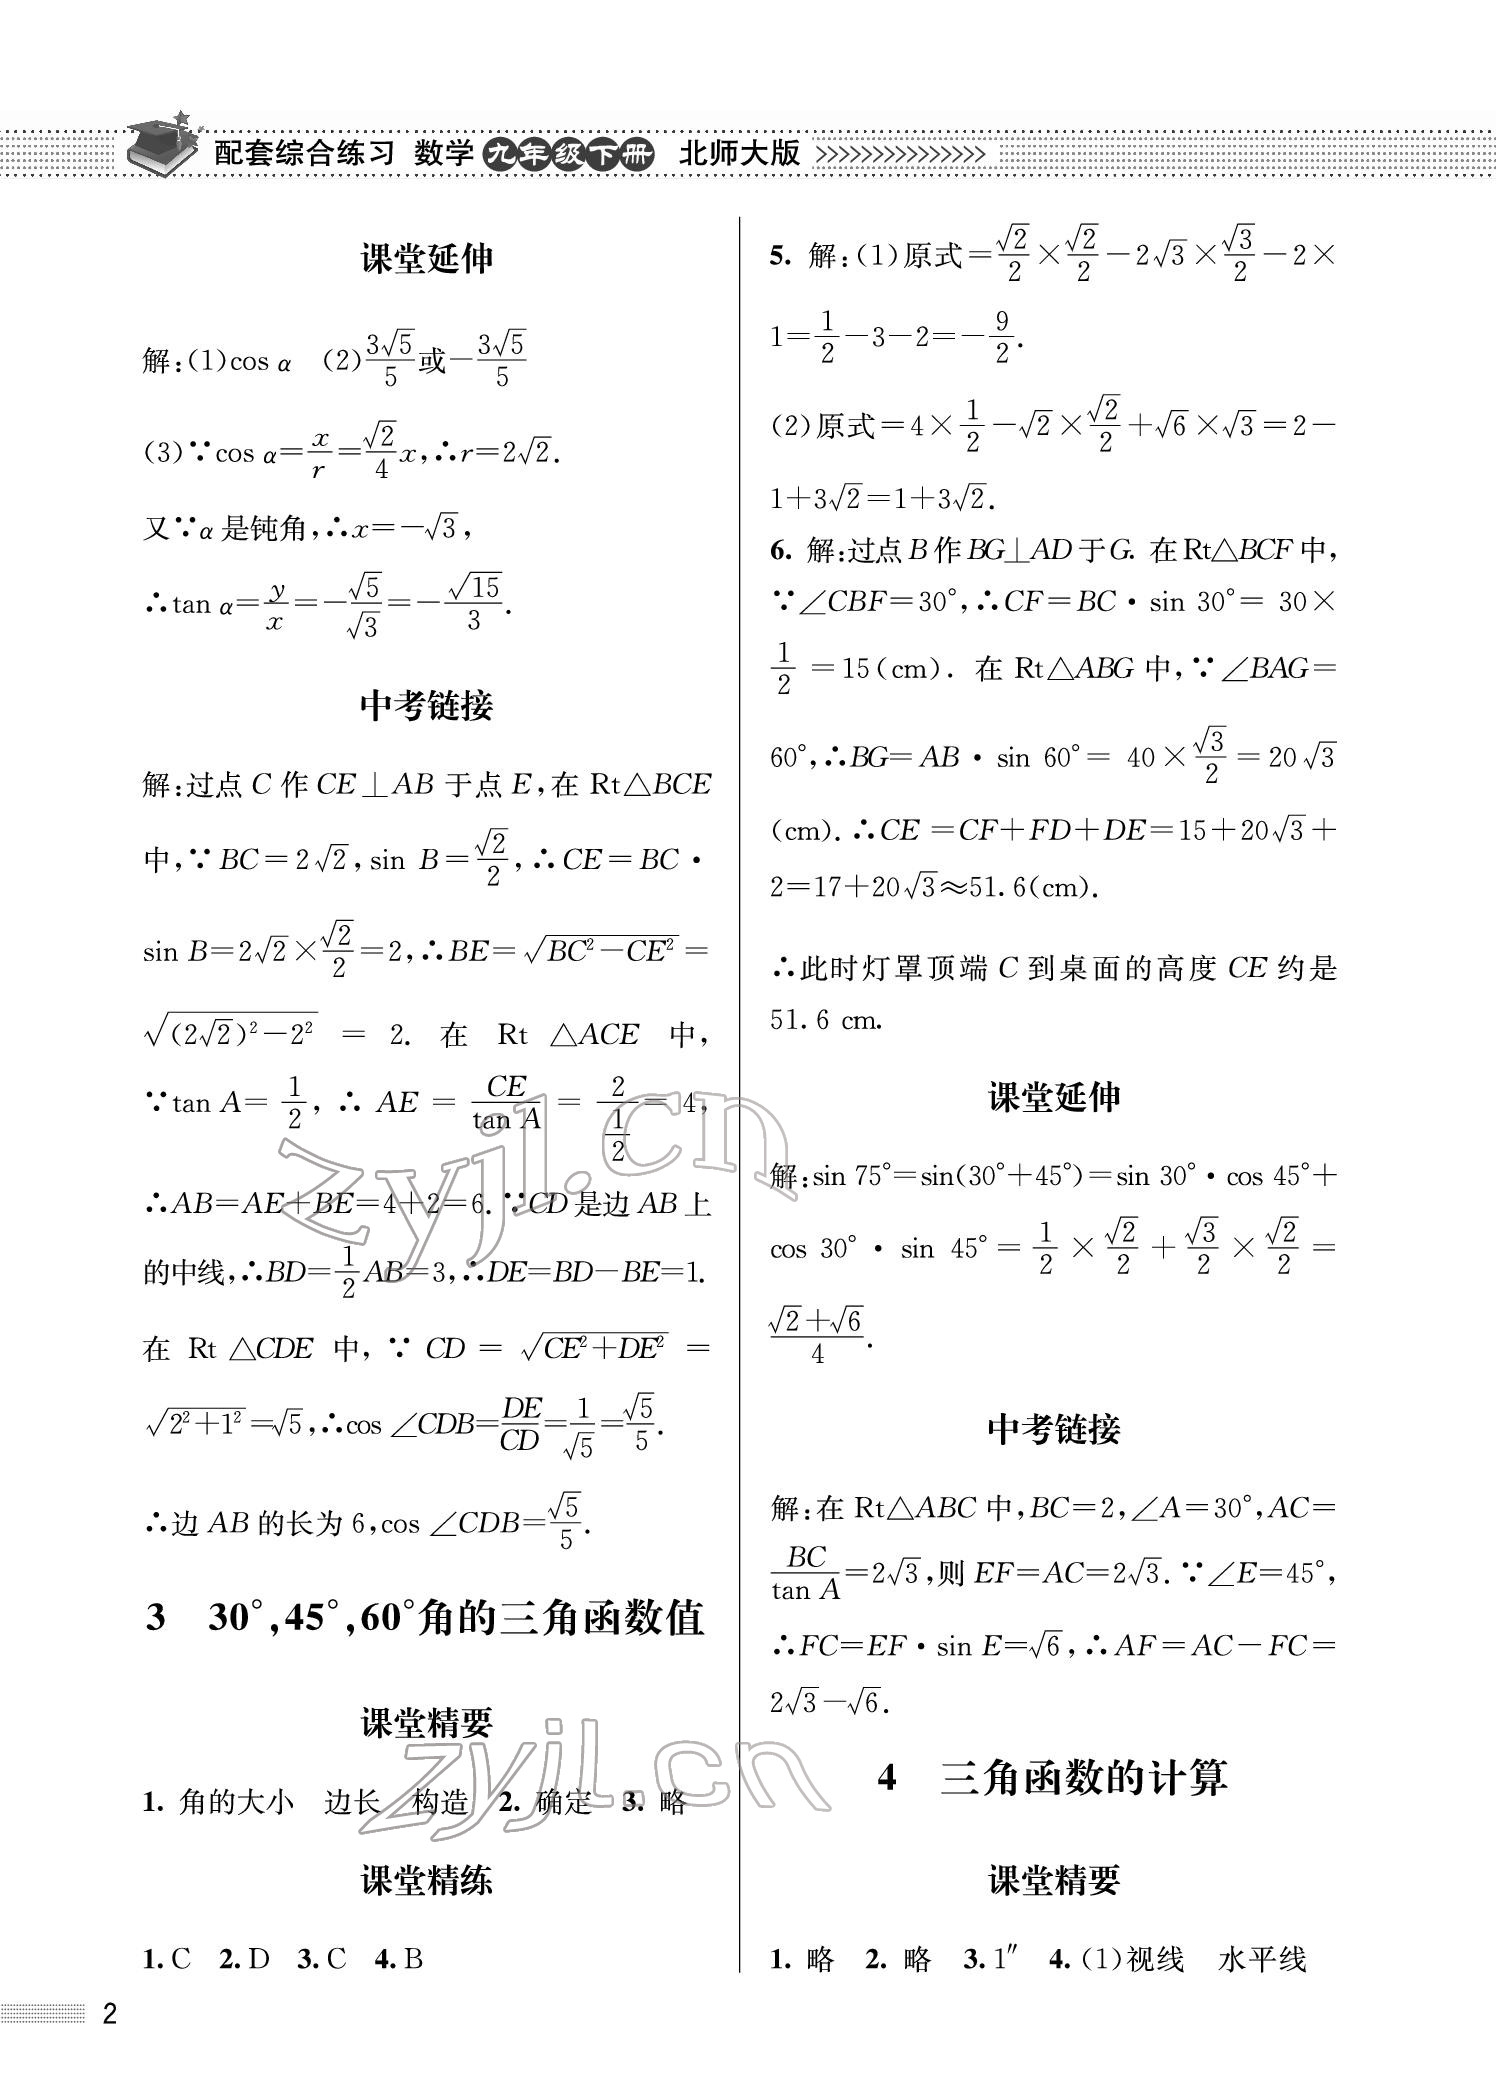 配套综合练习 数学 九年级下册 北师大版 >>>>>>>>>>>>>>>
课堂延伸
解:(1)cos α (2)3√5/5或-3√5/5
(3)∵cos α=x/r=√2/4 x,∴r=2√2.
又∵α是钝角,∴x=-√3,
∴tan α=y/x=-√5/√3=-√15/3.
中考链接
解:过点 C 作 CE⊥AB 于点 E,在 Rt△BCE
中,∵BC=2√2,sin B=√2/2,∴CE=BC·
sin B=2√2×√2/2=2,∴BE=√(BC²-CE²)=
√((2√2)²-2²) = 2. 在 Rt △ACE 中,
∵tan A=1/2,∴AE=CE/tan A=2/(1/2)=4,
∴AB=AE+BE=4+2=6.∵CD是边AB上
的中线,∴BD=1/2AB=3,∴DE=BD-BE=1.
在 Rt △CDE 中,∵CD=√(CE²+DE²)=
√(2²+1²)=√5,∴cos∠CDB=DE/CD=1/√5=√5/5.
∴边 AB 的长为 6,cos∠CDB=√5/5.
3 30°,45°,60°角的三角函数值
课堂精要
1. 角的大小 边长 构造 2. 确定 3. 略
课堂精练
1. C 2. D 3. C 4. B
5. 解:(1)原式=√2/2×√2/2-2√3×√3/2-2×
1=1/2-3-2=-9/2.
(2)原式=4×1/2-√2×√2/2+√6×√3=2-
1+3√2=1+3√2.
6. 解:过点B作BG⊥AD于G. 在Rt△BCF中,
∵∠CBF=30°,∴CF=BC·sin 30°=30×
1/2=15(cm). 在 Rt△ABG 中,∵∠BAG=
60°,∴BG=AB·sin 60°=40×√3/2=20√3
(cm).∴CE=CF+FD+DE=15+20√3+
2=17+20√3≈51.6(cm).
∴此时灯罩顶端 C 到桌面的高度 CE 约是
51.6 cm.
课堂延伸
解:sin 75°=sin(30°+45°)=sin 30°·cos 45°+
cos 30°·sin 45°=1/2×√2/2+√3/2×√2/2=
(√2+√6)/4.
中考链接
解:在 Rt△ABC 中,BC=2,∠A=30°,AC=
BC/tan A=2√3,则 EF=AC=2√3.∵∠E=45°,
∴FC=EF·sin E=√6,∴AF=AC-FC=
2√3-√6.
4 三角函数的计算
课堂精要
1. 略 2. 略 3. 1″ 4. (1)视线 水平线
2
zyjl.cn
zyjl.cn